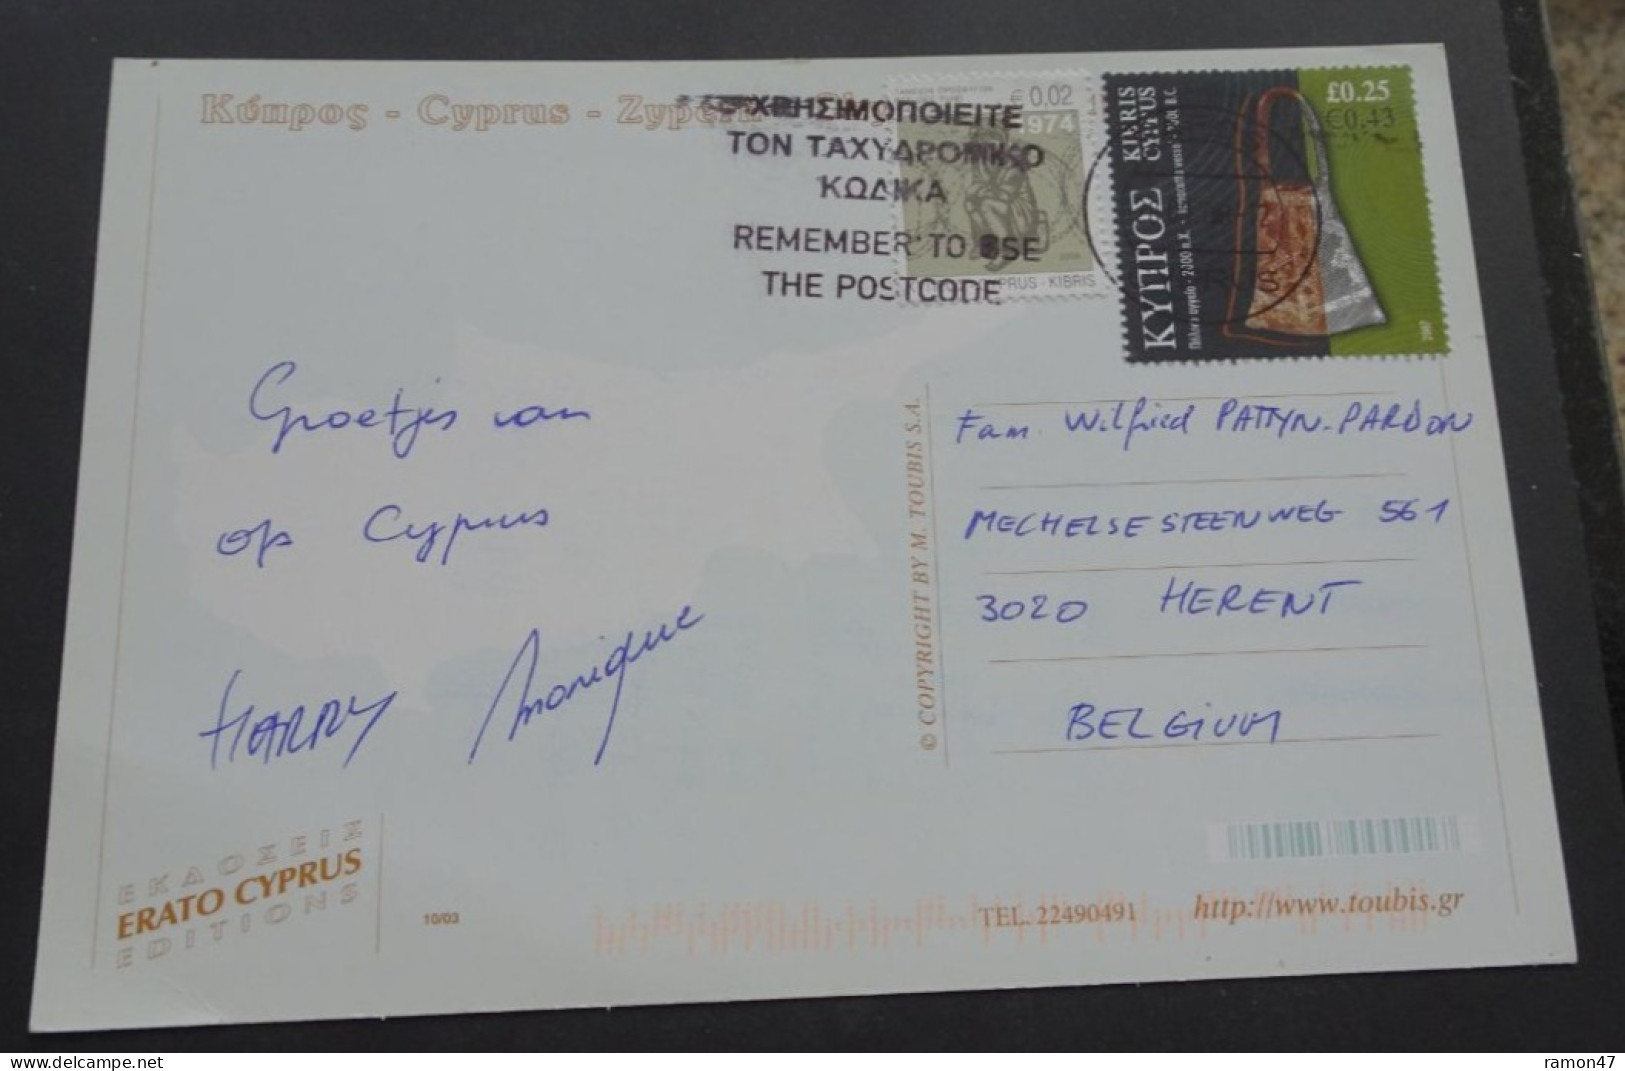 Κύπρος - Cyprus - Zypern
ΧΡΗΣΙΜΟΠΟΙΕΙΤΕ
ΤΟΝ ΤΑΧΥΔΡΟΜΙΚΟ
ΚΩΔΙΚΑ
REMEMBER TO USE
THE POSTCODE
€ 0,02
1974
CYPRUS · KIBRIS
ΚΥΠΡΟΣ KIBRIS
CYPRUS
£0.25
€0,43
2007
Groetjes van
op Cyprus
HARRY Monique
© COPYRIGHT BY M. TOUBIS S.A.
Fam. Wilfried PATTYN-PARDON
MECHELSESTEENWEG 561
3020 HERENT
BELGIUM
ΕΚΔΟΣΕΙΣ
ERATO CYPRUS
EDITIONS
10/03
TEL. 22490491 http://www.toubis.gr
Delcampe.net
ramon47